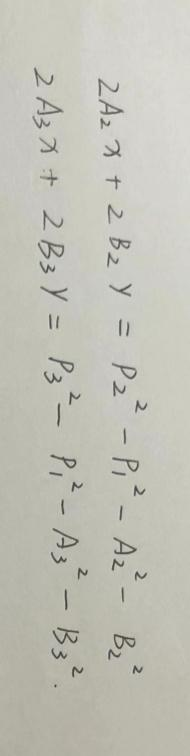 2A₂x + 2B₂y = P₂² - P₁² - A₂² - B₂²
2A₃x + 2B₃y = P₃² - P₁² - A₃² - B₃².